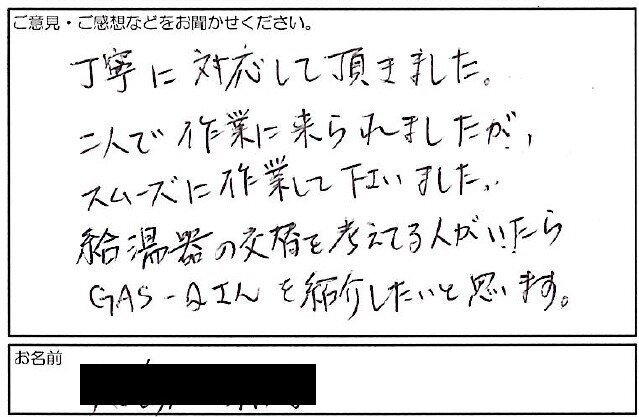 ご意見・ご感想などをお聞かせください。
丁寧に対応して頂きました。
二人で作業に来られましたが、
スムーズに作業して下さいました。
給湯器の交替を考えてる人がいたら
GAS-Qさんを紹介したいと思います。
お名前